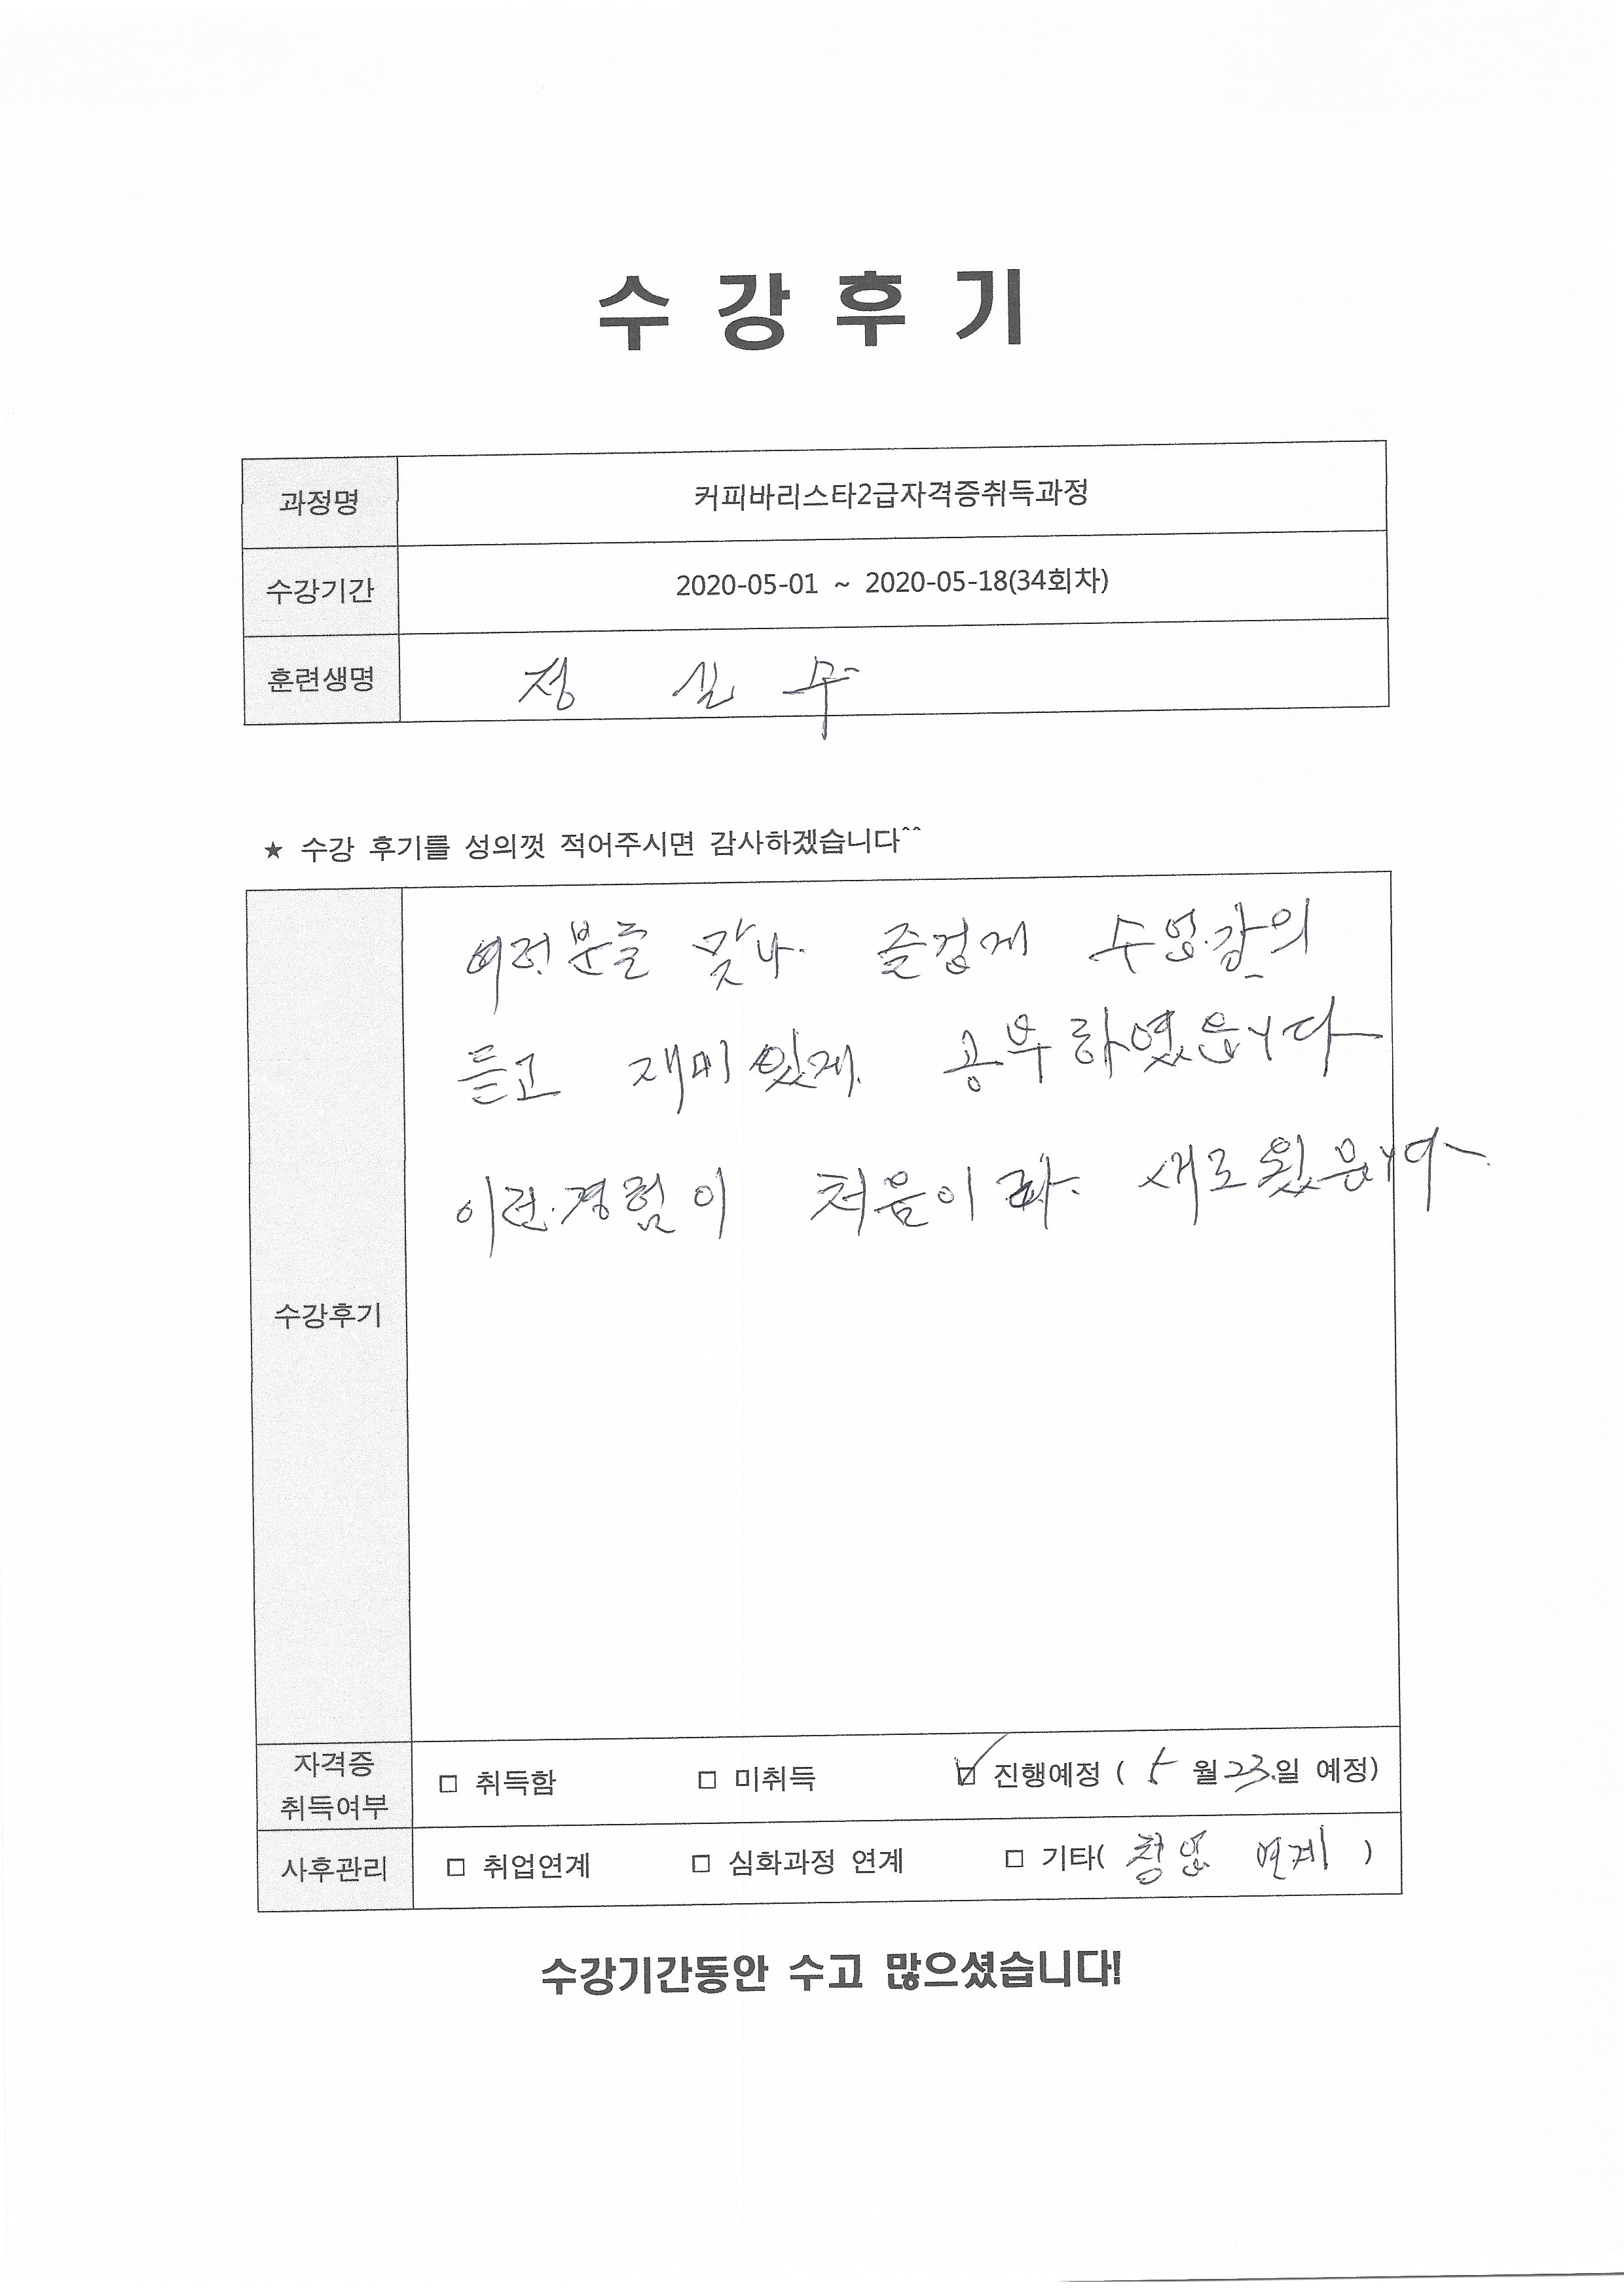 수 강 후 기
과정명 커피바리스타2급자격증취득과정
수강기간 2020-05-01 ~ 2020-05-18(34회차)
훈련생명 정
★ 수강 후기를 성의껏 적어주시면 감사하겠습니다^^
여러분들 맞나. 즐겁게 수업.강의
듣고 재미있게 공부하였읍니다
이런.경험이 처음이라. 새로웠읍니다
수강후기
자격증
취득여부
□ 취득함 □ 미취득 ☑ 진행예정 ( 5 월 23.일 예정)
사후관리 □ 취업연계 □ 심화과정 연계 □ 기타( 창업 연계 )
수강기간동안 수고 많으셨습니다!